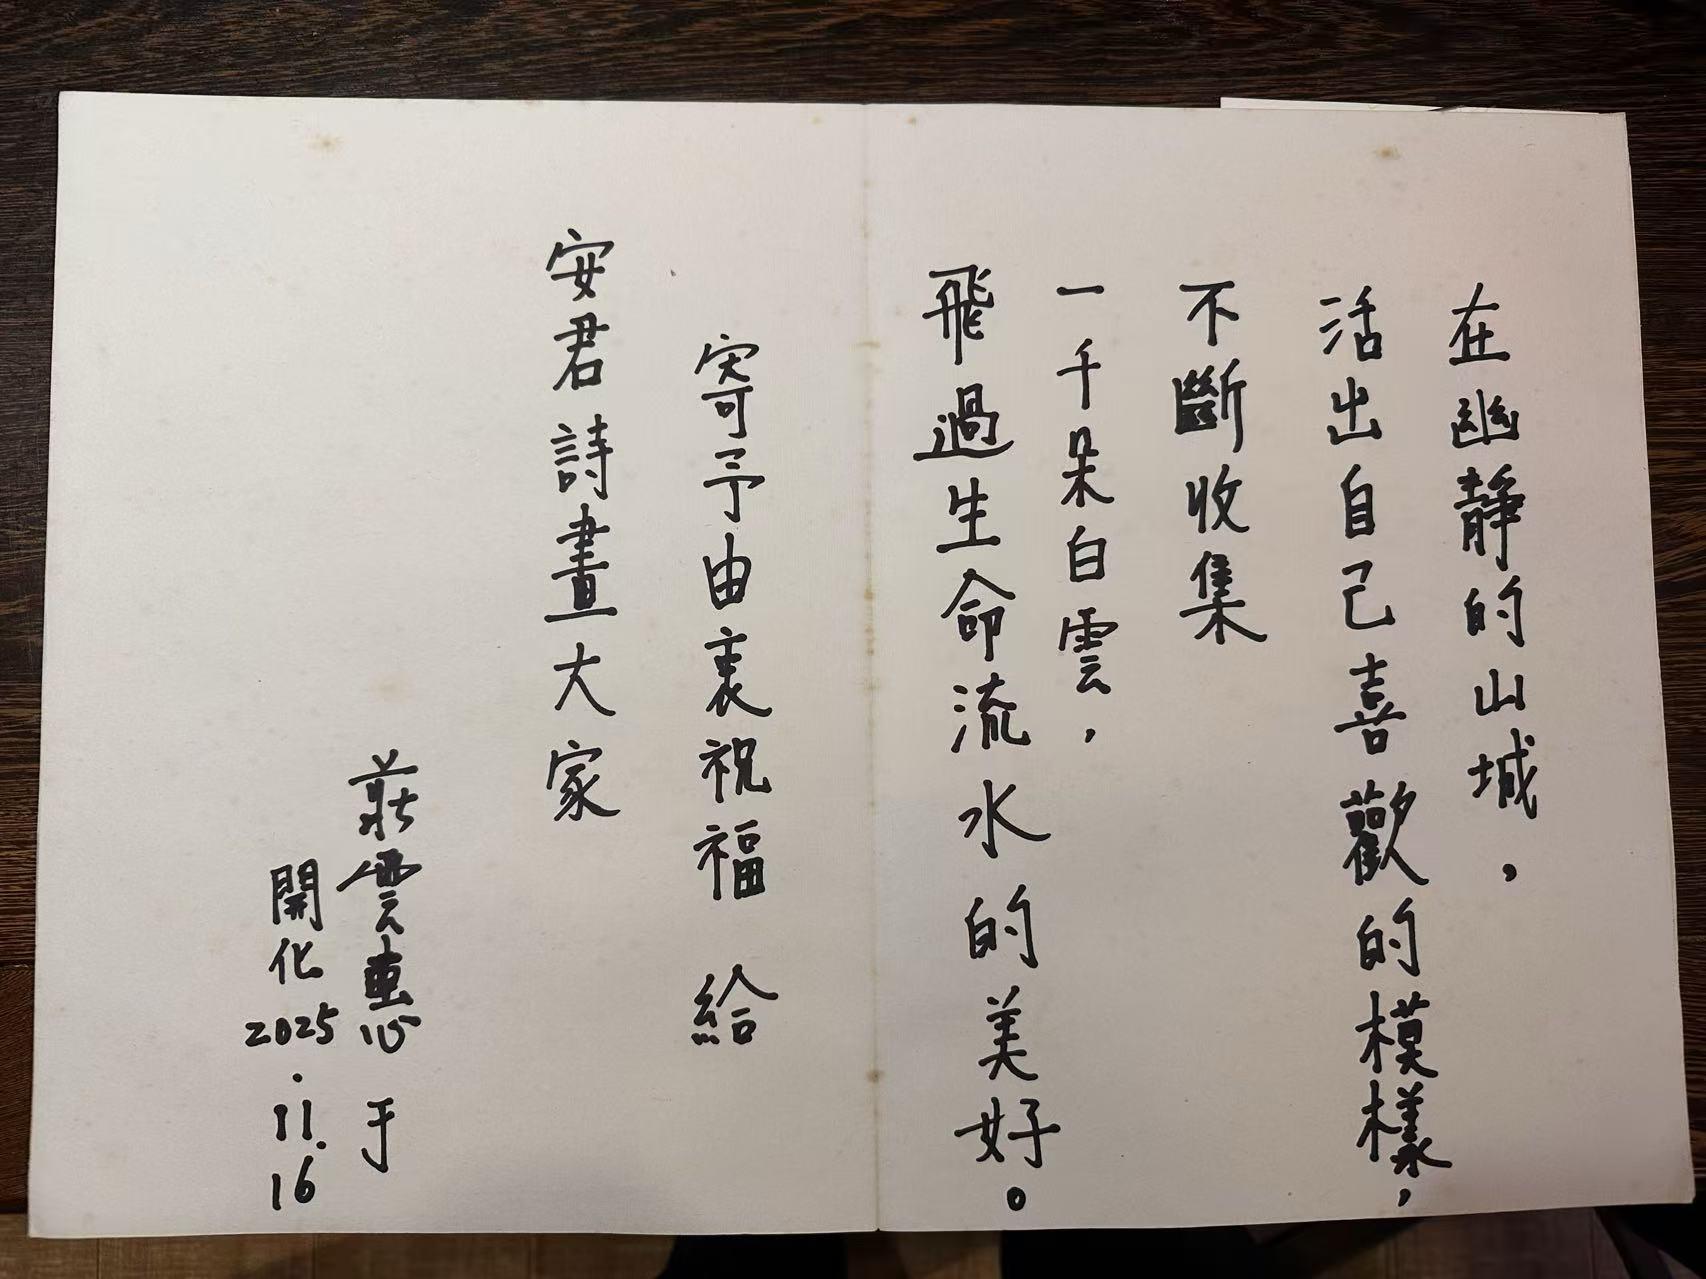 在幽靜的山城，
活出自己喜歡的模樣，
不斷收集
一千朵白雲，
飛過生命流水的美好。
寄予由衷祝福 給
安君詩畫大家
莊雲惠 于
開化
2025.11.16